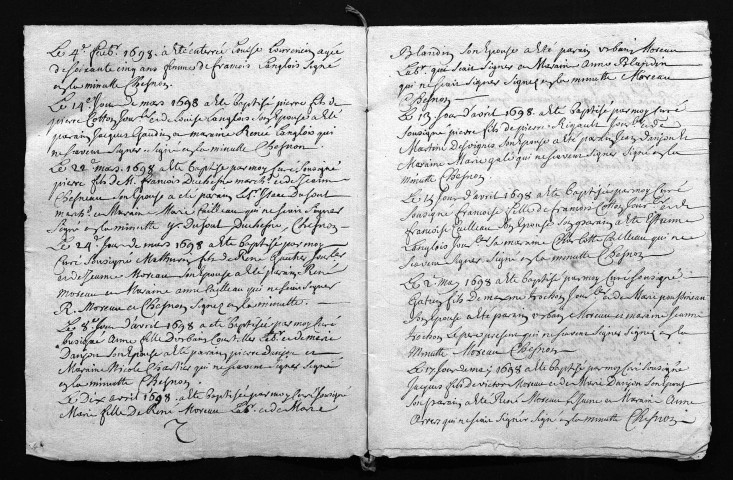 Le 4e feb.r 1698. a eté enterrée Louise Lourencin agée
de soixante cinq ans femme de francois Langlois signé
en la minutte Chesnon.
Le 14e Jour de mars 1698 a eté baptisé pierre fils de
pierre Cotton Jour.r et de Louise Langlois son Epouse a eté
parain Jacques Gaudin ou maraine Renee Langlois qui
ne scavent signer signé en la minutte Chesnon
Le 22e mars 1698 a eté baptisé par moy curé soussigné
pierre fils de M. francois Duchesne march.t et de Jeanne
Chesneau son Epouse a eté parain Le Sr Isaac Dufont
march.t et Maraine Marie Cailleau qui ne scait signer
Signé en la minutte Y. Dufont Duchesne, Chesnon
Le 24e Jour de mars 1698 a eté baptisé par moy
curé soussigné Mathurin fils de René Gautier
et de Jeanne Moreau son Epouse a eté parain René
Moreau et Maraine anne Cailleau qui ne scait signer
R. Moreau et Chesnon signez en la minutte.
Le 8e Jour d'avril 1698 a eté baptisée par moy curé
soussigné Anne fille d'urbain Lab.r et de marie
Danjon son Epouse a eté parain pierre danjon et
Maraine Nicole Chartier qui ne scavent signer signé
en la minutte Chesnon.
Le Dix avril 1698. a eté baptisée par moy curé soussigné
Marie fille de René Moreau Lab.r et de Marie
Blandin son Epouse a eté parain urbain Moreau
Lab.r qui scait signer ou Maraine Anne Blandin
qui ne scait signer signez en la minutte Moreau
Chesnon
Le 13 Jour d'avril 1698. a eté baptisé par moy curé
soussigné pierre fils de pierre Rigault Jour.r et de
Martine son Epouse a eté parain Jean Danjon et
Maraine Marie galé qui ne scavent signer signé en la
minutte Chesnon
Le 15 Jour d'avril 1698 a eté baptisée par moy Curé
soussigné francoise fille de francois Cotton Jour.r et de
francoise Cailleau son Epouse son parain a eté Etienne
Langlois Jour.r sa maraine Charlotte Cailleau qui ne
scavent signer signé en la minutte Chesnon
Le 2e may 1698 a eté baptisé par moy curé soussigné
Gatien fils de maxime trochon Jour.r et de Marie
son Epouse a eté parain urbain Moreau et maraine Jeanne
trochon Le pere present qui ne scavent signer signez en la
minutte Moreau Chesnon
Le 17 Jour de may 1698 a eté baptisé par moy curé soussigné
Jacques fils de victor Moreau et de Marie Danjon son Epouse
son parain a eté René Moreau et Maraine Anne
qui ne scait signer signé en la minutte Chesnon